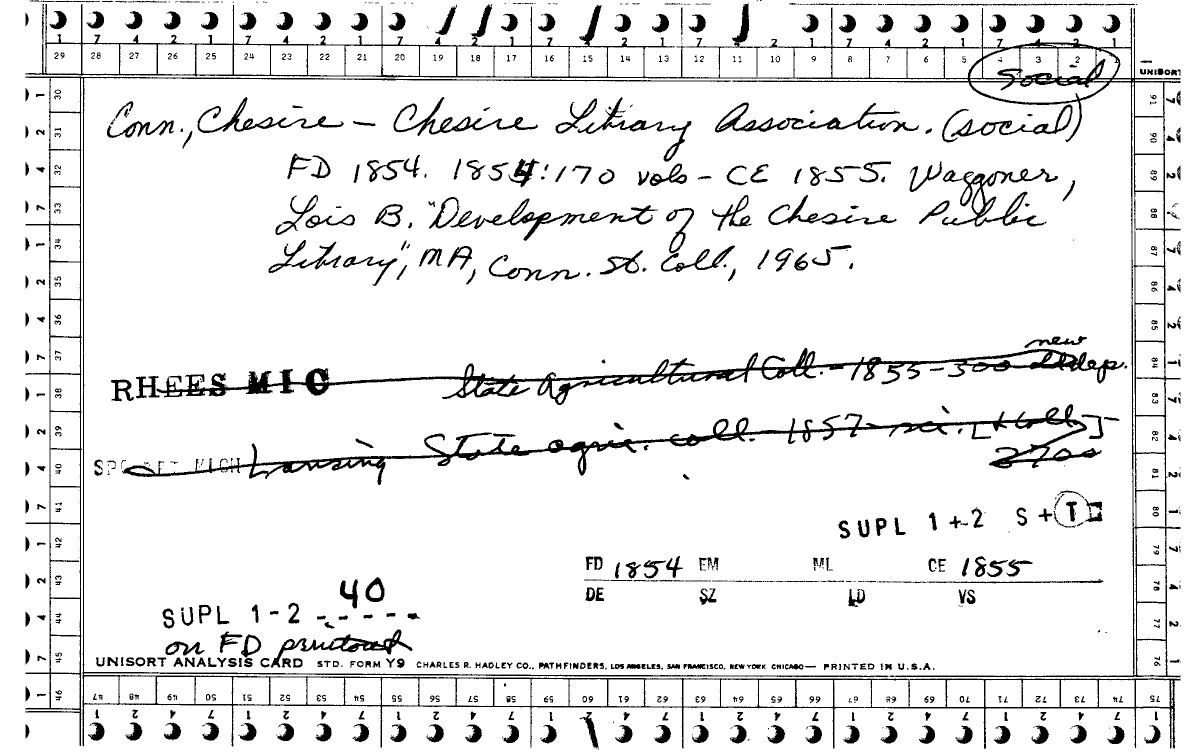 1 7 4 2 1 7 4 2 1 7 4 2 1 7 2 1 7 4 2 1 7 4 2 1
29 28 27 26 25 24 23 22 21 20 19 18 17 16 15 14 13 12 11 10 9 8 7 6 5 4 3 2 1
Social
UNISORT
Conn., Chesire – Chesire Library Association. (social)
FD 1854. 1854: 170 vols – CE 1855. Waggoner,
Lois B. "Development of the Chesire Public
Library", MA, Conn. St. Coll., 1965.
new
RHEES MIC State Agricultural Coll. – 1855 – 300
Lansing State agric. coll. 1857 – sci. [+ Coll.]
2700
SUPL 1+2 S+T
FD 1854 EM ML CE 1855
DE SZ LD VS
40
SUPL 1-2 - - - - -
on FD printout
UNISORT ANALYSIS CARD STD. FORM Y9 CHARLES R. HADLEY CO., PATHFINDERS, LOS ANGELES, SAN FRANCISCO, NEW YORK CHICAGO — PRINTED IN U.S.A.
30 31 32 33 34 35 36 37 38 39 40 41 42 43 44 45 46
47 48 49 50 51 52 53 54 55 56 57 58 59 60 61 62 63 64 65 66 67 68 69 70 71 72 73 74 75
91 90 89 88 87 86 85 84 83 82 81 80 79 78 77 76